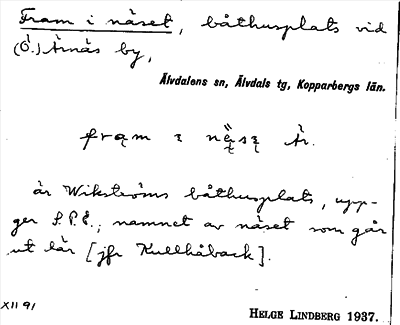 Fram i näset, båthusplats vid
(Ö.) Årnäs by,
Älvdalens sn, Älvdals tg, Kopparbergs län.
fram ı
är Wikströms båthusplats, upp-
ger S.P.E.; namnet av näset som går
ut här [jfr Kullhåback].
XII 91
HELGE LINDBERG 1937.